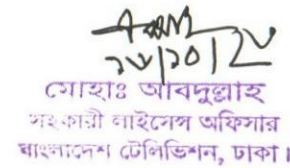 ২৮/১০/২০
মোহাঃ আবদুল্লাহ
সহকারী লাইসেন্স অফিসার
বাংলাদেশ টেলিভিশন, ঢাকা।